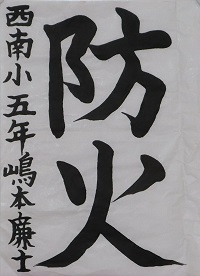 防火
西南小五年嶋本廉士